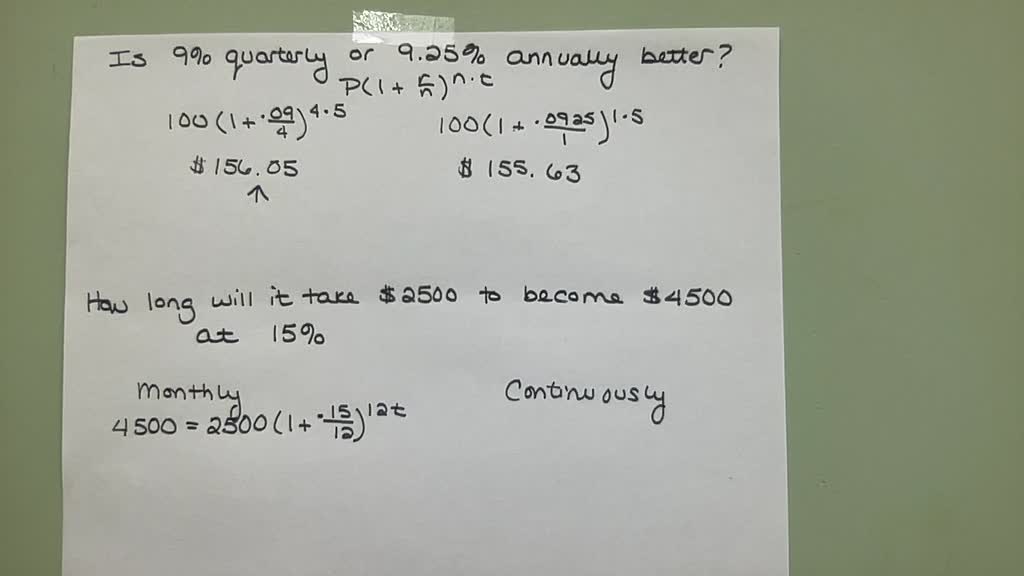 Is 9% quarterly or 9.25% annually better?
P(1 + r/n)^n·t
100(1 + .09/4)^4·5
100(1 + .0925/1)^1·5
$156.05
$155.63
↑
How long will it take $2500 to become $4500
at 15%
Monthly
Continuously
4500 = 2500(1 + .15/12)^12t